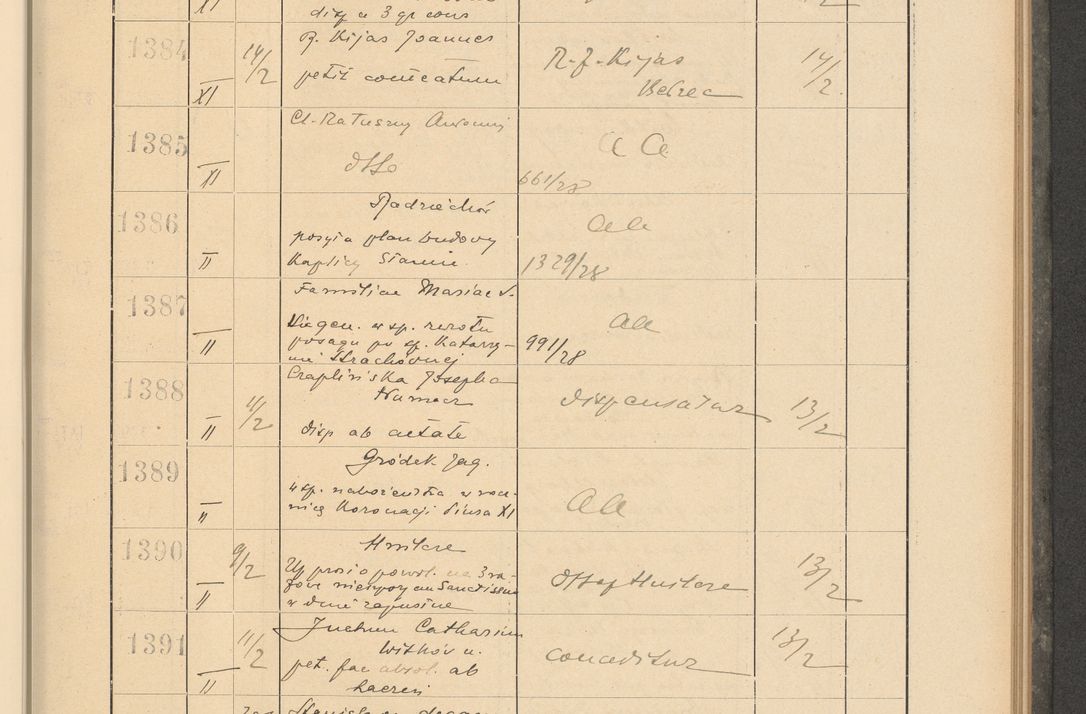 XI
disp a 3 gr cons
1384
XI
14/2
R. Kijas Joannes
petit
R. J. Kijas
Bełzec
14/2.
1385
XI
Cl. Matuszny Antoni
dtto
a a
661/28
1386
II
Radziechów
posyła plan budowy
Kaplicy Stanin.
aa
1329/28
1387
II
Familiae Mariae S.
w sp. zwrotu
posagu po sp. Katarzy-
nie Strachównej
aa
991/28
1388
II
11/2
Czaplińska Josepha
disp ab aetate
dispensatur
13/2
1389
II
Gródek Jag.
w sp. nabożeństwa w rocz-
nicę Koronacji Piusa XI
aa
1390
II
9/2
Hnilcze
Up prosi o pozwol. na 3 ra-
w dnie zapustne
Hnilcze
13/2
1391
II
11/2
Juchum Catharina
Witków n.
pet. fac absol. ab
haeresi
conceditur
13/2